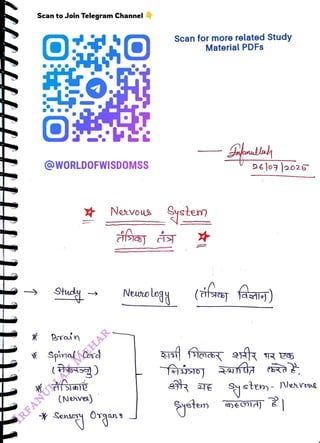 Scan to Join Telegram Channel 👇
Scan for more related Study
Material PDFs
@WORLDOFWISDOMSS
Irfanullah
26/07/2025
Nervous System
तंत्रिका तंत्र
→ Study → Neurology (तंत्रिका विज्ञान)
* Brain
* Spinal Cord
(मेरुरज्जु)
* तंत्रिकाएँ
(Nerves)
* Sensory Organs
सभी मिलकर शरीर पर एक
नियंत्रण स्थापित करते है,
और यह System - Nervous
System कहलाता है |